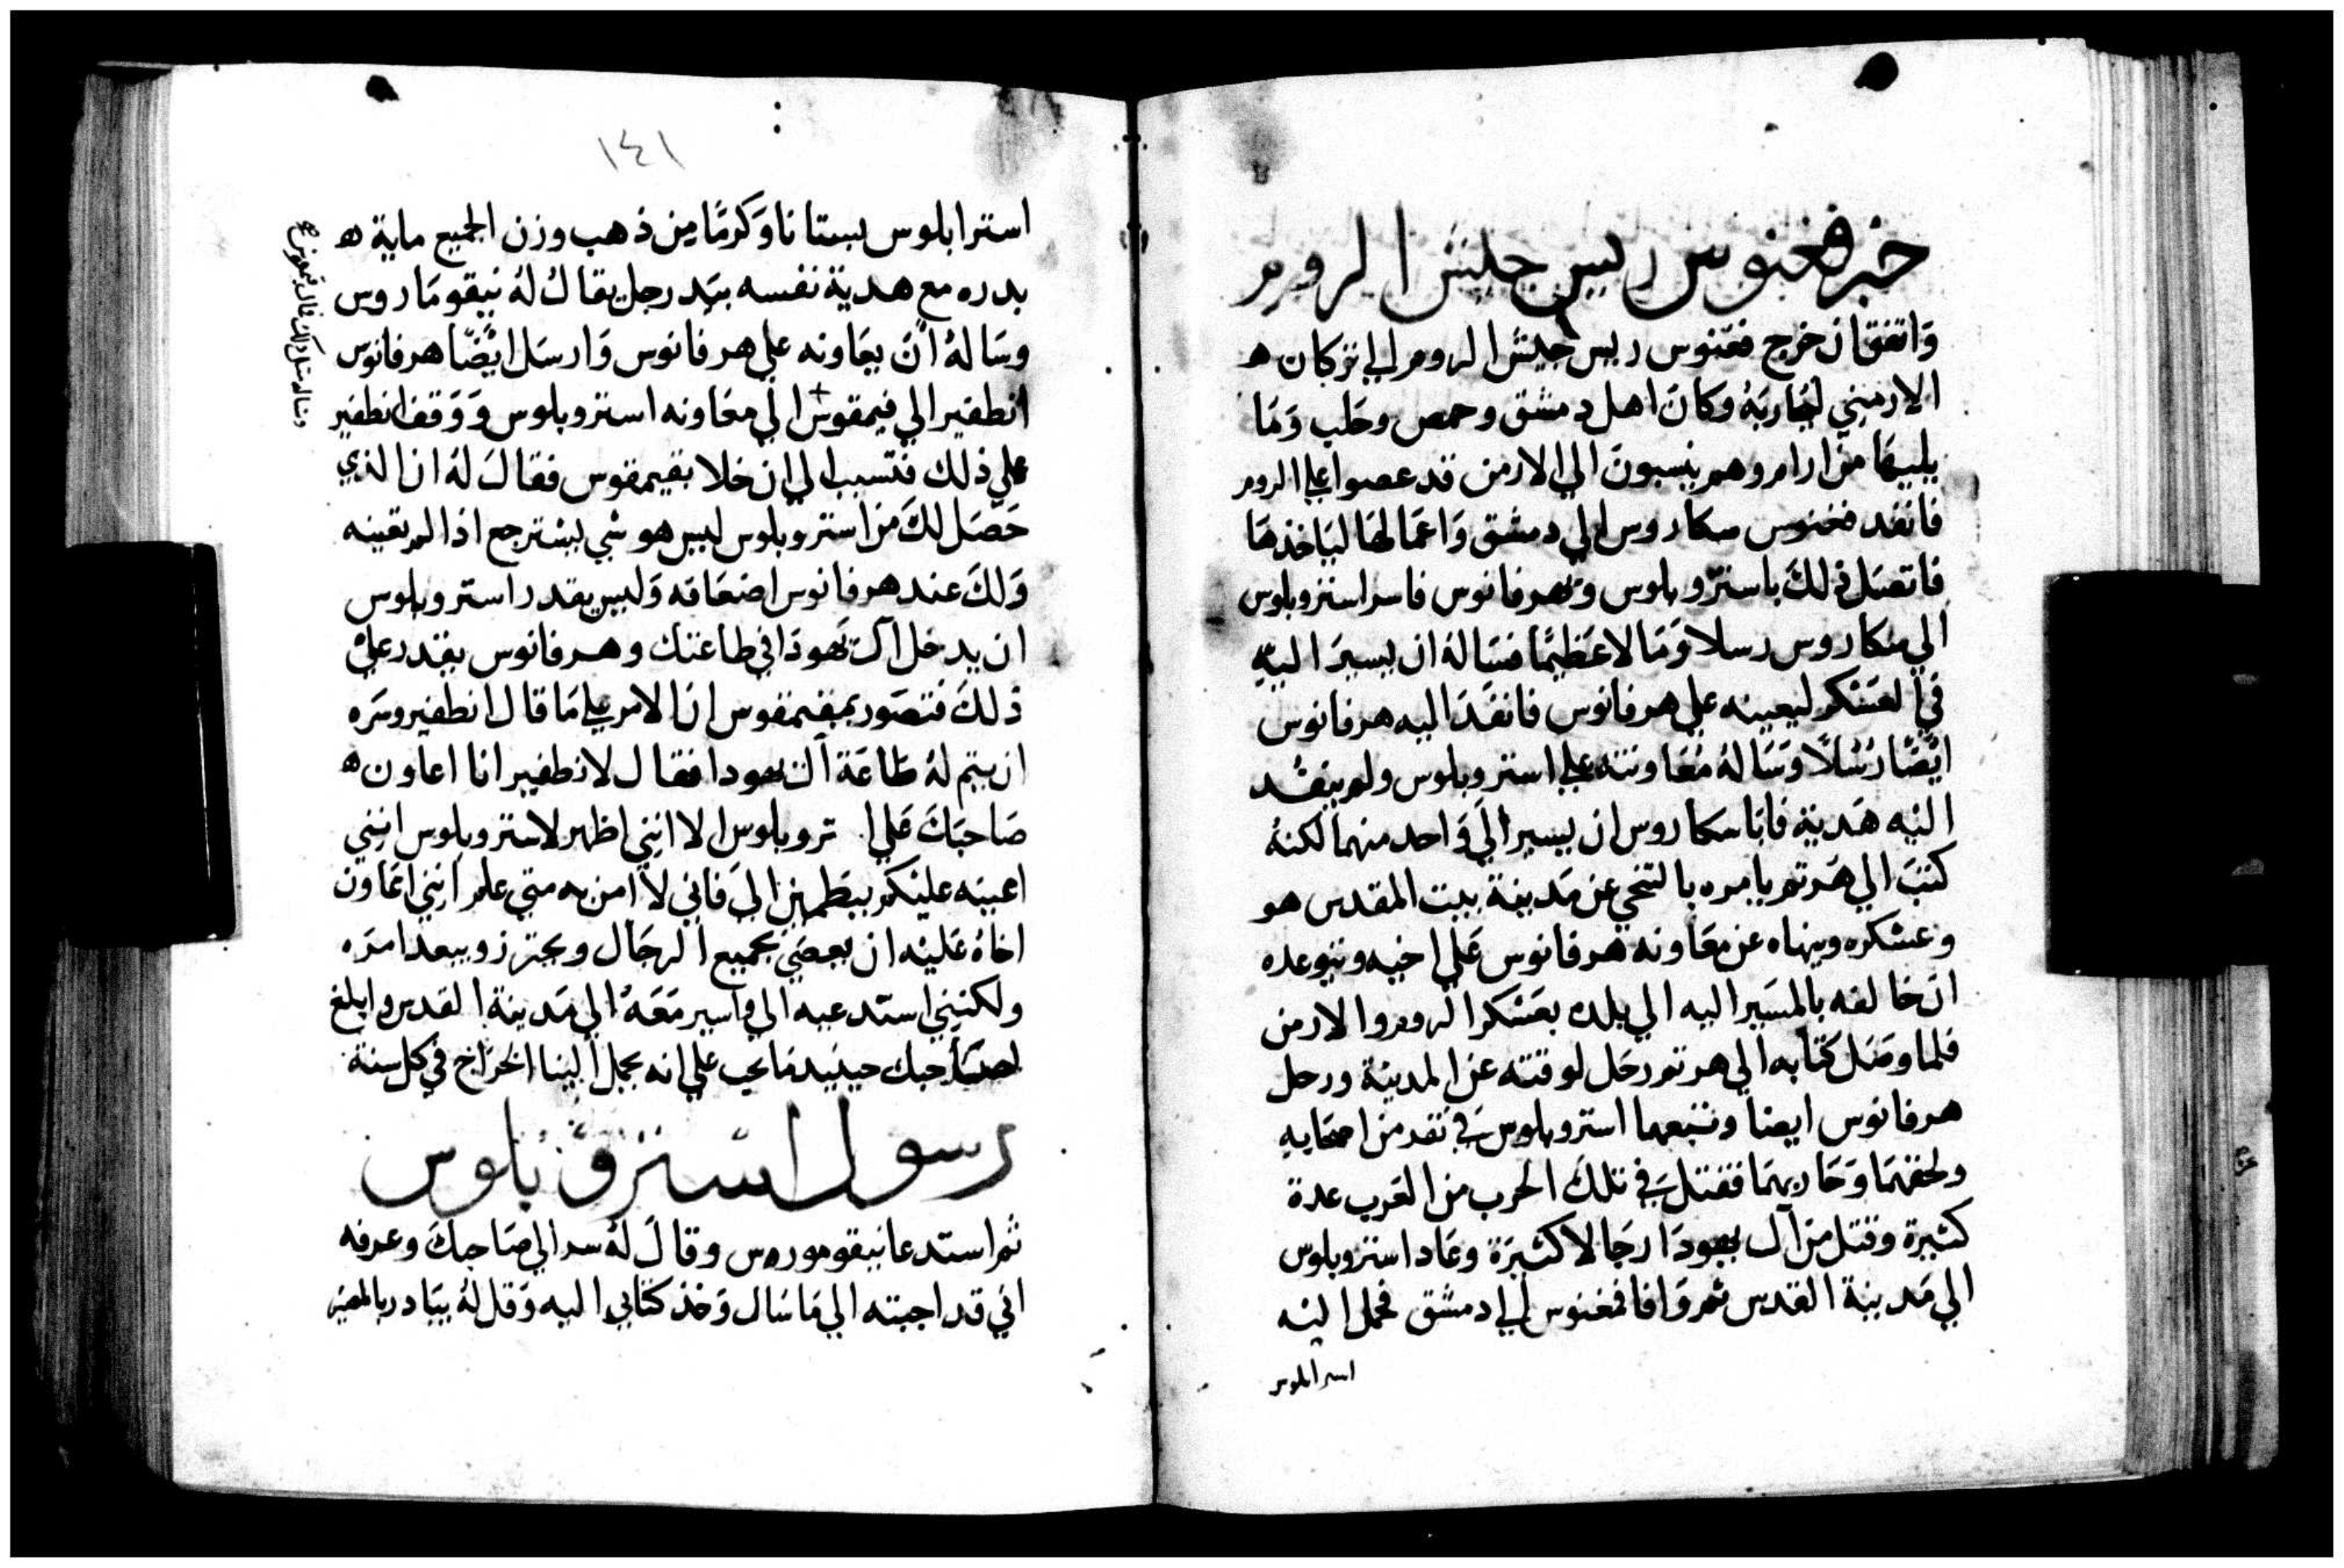 خبر فمغنوس ريس جليش الروم
وَاتفق ان خرج فمغنوس ريس جليش الروم الي تركان ه
الارمني لمحاربَهُ وكانَ اهل دمشق وحمص وحَلب وَمَا
يليهَا من ارام وهم ينسبون الي الارمن قد عصوا علي الروم
فانفد فمغنوس سكاروس الي دمشق وَاعمَالهَا ليَاخذهَا
فاتصَل ذلكَ باسترّوبلوس وَبهرفانوس فاسر استروبلوس
الي سكاروس رسلا وَمَالا عَظيمًا فسَالهُ ان يسيرَ اليهِ
في العسْكر ليعينه علي هرفانوس فانفَدَ اليه هرفانوس
ايْضًا رُسُلاً وَسَالهُ مُعَاونته علي استروبلوس ولم ينفد
اليْه هَدية فابَا سكاروس ان يسير الَي وَاحد منهما لكنهُ
كتبَ الي هَرتم يامره بالتنحي عن مَدينة بيت المقدس هو
وعسْكره وينهاه عن معَاونه هرفانوس عَلي اخيه ويتوعده
ان خالفه بالمسَير اليه الي بلده بعَسْكر الروم والارمن
فلما وصَل كتابه الي هرتم رحَل لوقته عن المدينة ورحل
هرفانوس ايضا وتتبعهما استروبلوس في نفد من اصحَابهِ
ولحقهمَا وَحَاربهمَا فقتل في تلكَ الحرب من العَرب عدة
كثيرة وقتل من آل يهودَا رجَالا كثيَرة وعَاد استروبلوس
الي مَدينة القدس ثم وَافا فمغنوس الي دمشق فحمل اليْه
استرابلوس
١٤١
استرابلوس بستانا وَكرمًا من ذهب وزن الجميع ماية ه
بدره مع هدية نفسه بيَد رجل يقالُ لهُ نيقومَاروس
وسَالهُ انَ يعَاونه علي هرفانوس وَارسَل ايْضًا هرفانوَس
انطفير الي فيمقوس الي معَاونه استروبلوس وَوَقف انطفير
علي ذلك فتسبب الي ان خلا بفيمقوس فقالَ لهُ ان الذي
حَصَل لكَ من استروبلوس ليس هو شي يسْترجع اذا لم تعينه
وَلكَ عند هرفانوس اضعَافه وَليس يقدر استروبلوس
ان يدخل آل يَهودَا في طاعتك وهرفانوس يقدر علي
ذلكَ فتصَور بمفيمقوس ان الامر علي مَا قال انطفير وسَره
ان يتم لهُ طَاعَة آل يهودا فقال لانطفير انا اعاون ه
صَاحبَكَ عَلي ا تروبلوس الا انني اظهر لاستروبلوس انني
اعينه عليْكم ليطمين اليَ فاني لا امن به متي علم انني اعَاون
اخاهُ عَليْه ان يعصَي بجميع الرجَال ويحترز ويبعد امرَه
ولكنني استَدعيه الي واسير مَعَهُ الي مَدينة القدس وابلغ
لصَاحبك حينيد مَا يحب علي انه يحمل الينا الخرَاج في كل سنة
رسول استروبلوس
ثم استدعا نيقوموروس وقالَ لهُ سر الي صَاحبكَ وعرفه
اني قد اجبته الي مَا سَال وَخذ كتابي اليه وَقل لهُ يبَادر بالمصَير